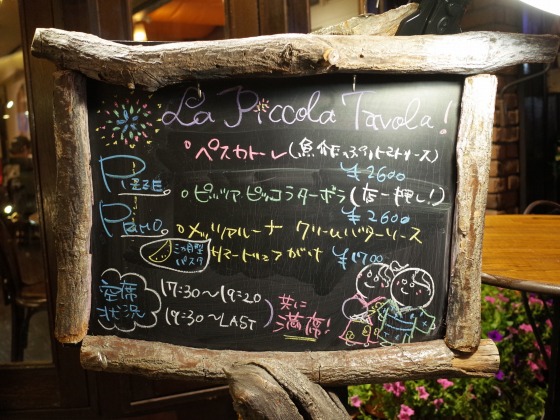 La Piccola Tavola!
ペスカトーレ(魚介たっぷりトマトソース)
¥2600
PIZZE。
ピッツア ピッコラターボラ(店一押し!)
¥2600
PRIMO。
メッツァルーナ クリームバターソース
三日月型
パスタ
サマートリュフがけ ¥1700
空席
状況
17:30〜19:20
19:30〜LAST
共に
満席!